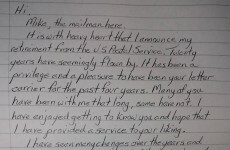 Hi,
Mike, the mailman here.
It is with heavy heart that I announce my
retirement from the U.S Postal Service. Twenty
years have seemingly flown by. It has been a
privilege and a pleasure to have been your letter
carrier for the past four years. Many of you
have been with me that long, some have not. I
have enjoyed getting to know you and hope that
I have provided a service to your liking.
I have seen many changes over the years and